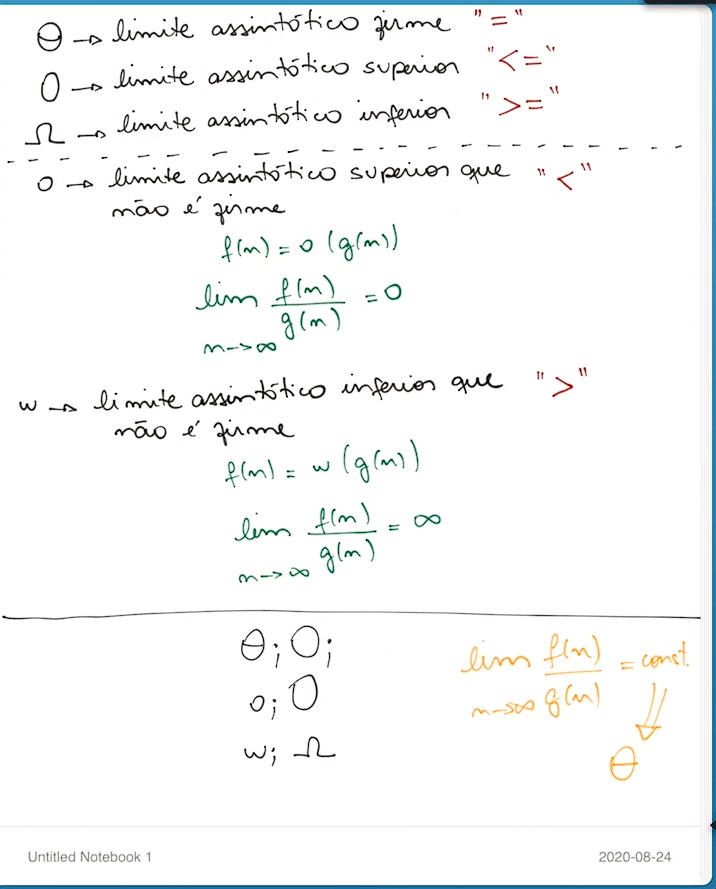 Θ → limite assintótico firme "="
O → limite assintótico superior "<="
Ω → limite assintótico inferior ">="
o → limite assintótico superior que "<"
não é firme
f(n) = o (g(n))
lim f(n)/g(n) = 0
n->∞
w → limite assintótico inferior que ">"
não é firme
f(n) = w (g(n))
lim f(n)/g(n) = ∞
n->∞
Θ; O;
o; O
w; Ω
lim f(n)/g(n) = const.
n->∞
⇓
Θ
Untitled Notebook 1
2020-08-24